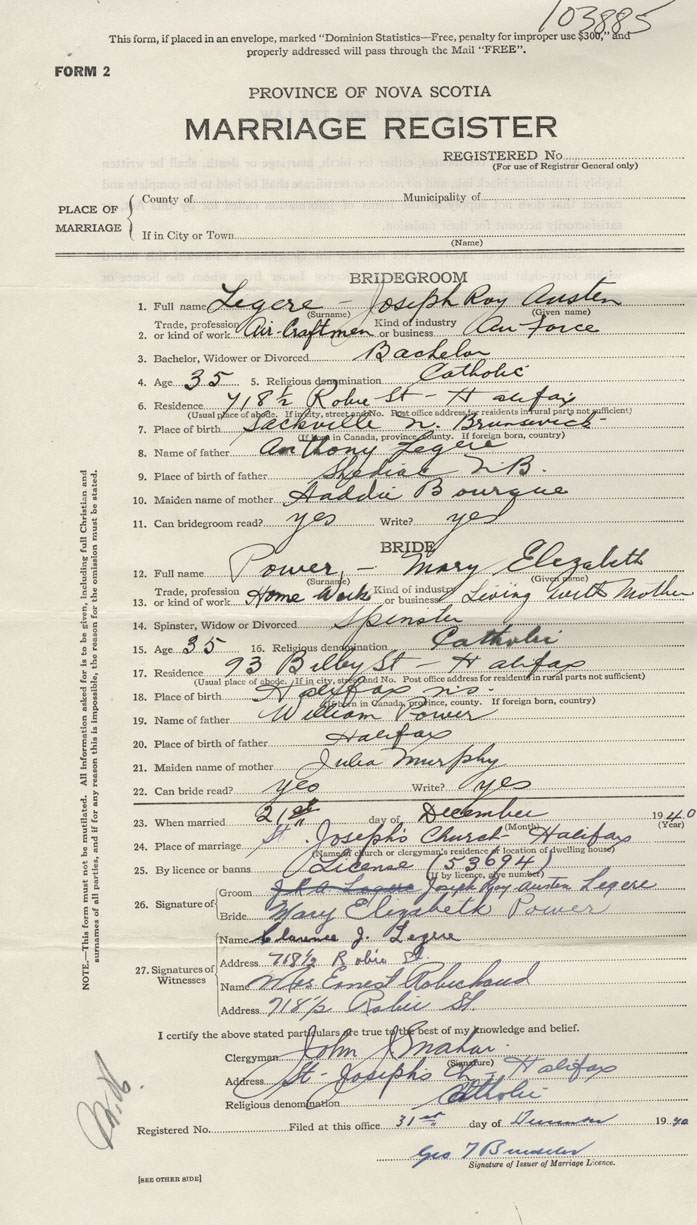 103885
This form, if placed in an envelope, marked "Dominion Statistics—Free, penalty for improper use $300," and
properly addressed will pass through the Mail "FREE".
FORM 2
PROVINCE OF NOVA SCOTIA
MARRIAGE REGISTER
REGISTERED No
(For use of Registrar General only)
PLACE OF MARRIAGE
County of Municipality of
If in City or Town
(Name)
BRIDEGROOM
1. Full name Legere - Joseph Roy Austen
(Surname) (Given name)
2. Trade, profession or kind of work Air-Craftmen Kind of industry or business Air Force
3. Bachelor, Widower or Divorced Bachelor
4. Age 35 5. Religious denomination Catholic
6. Residence 718½ Robie St - Halifax
(Usual place of abode. If in city, street and No. Post office address for residents in rural parts not sufficient)
7. Place of birth Sackville N. Brunswick
(If born in Canada, province, county. If foreign born, country)
8. Name of father Anthony Legere
9. Place of birth of father Shediac N.B.
10. Maiden name of mother Haddie Bourgue
11. Can bridegroom read? yes Write? yes
BRIDE
12. Full name Power, - Mary Elizabeth
(Surname) (Given name)
13. Trade, profession or kind of work Home Work Kind of industry or business Living with Mother
14. Spinster, Widow or Divorced Spinster
15. Age 35 16. Religious denomination Catholic
17. Residence 93 Bilby St - Halifax
(Usual place of abode. If in city, street and No. Post office address for residents in rural parts not sufficient)
18. Place of birth Halifax N.S.
(If born in Canada, province, county. If foreign born, country)
19. Name of father William Power
20. Place of birth of father Halifax
21. Maiden name of mother Julia Murphy
22. Can bride read? yes Write? yes
23. When married 21st day of December 1940
(Month) (Year)
24. Place of marriage St. Joseph's Church - Halifax
(Name of church or clergyman's residence or location of dwelling house)
25. By licence or banns License (53694)
(If by licence, give number)
26. Signature of
Groom Joseph Roy Austen Legere
Bride Mary Elizabeth Power
27. Signatures of Witnesses
Name Clarence J. Legere
Address 718½ Robie St.
Name Mrs Ernest Robichaud
Address 718½ Robie St.
I certify the above stated particulars are true to the best of my knowledge and belief.
Clergyman John
(Signature)
Address St-Joseph's Ch - Halifax
Religious denomination Catholic
Registered No. Filed at this office 31st day of 1940
Geo T
Signature of Issuer of Marriage Licence.
[SEE OTHER SIDE]
NOTE.—This form must not be mutilated. All information asked for is to be given, including full Christian and
surnames of all parties, and if for any reason this is impossible, the reason for the omission must be stated.